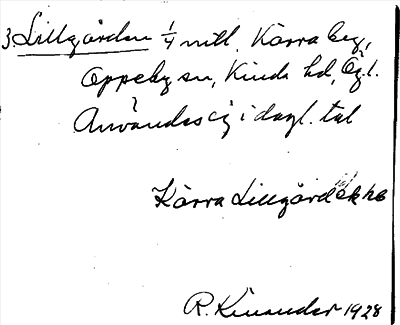 3 Lillgården 1/4 mtl. Kärra by,
Oppeby sn, Kinda hd, Ög.l.
Användes ej i dagl. tal
Kärra Lillgård ekbo
R. Kinander 1928